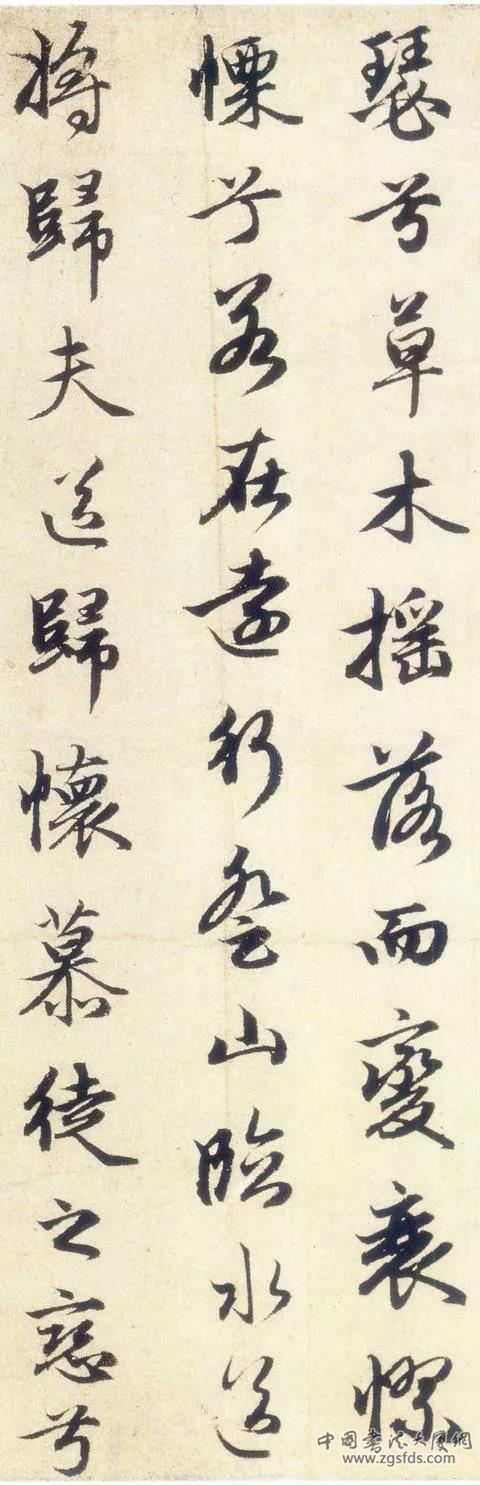 瑟兮草木搖落而變衰憀
慄兮若在遠行登山臨水送
將歸夫送歸懷慕徒之戀兮
中國書法大厦網
www.zgsfds.com